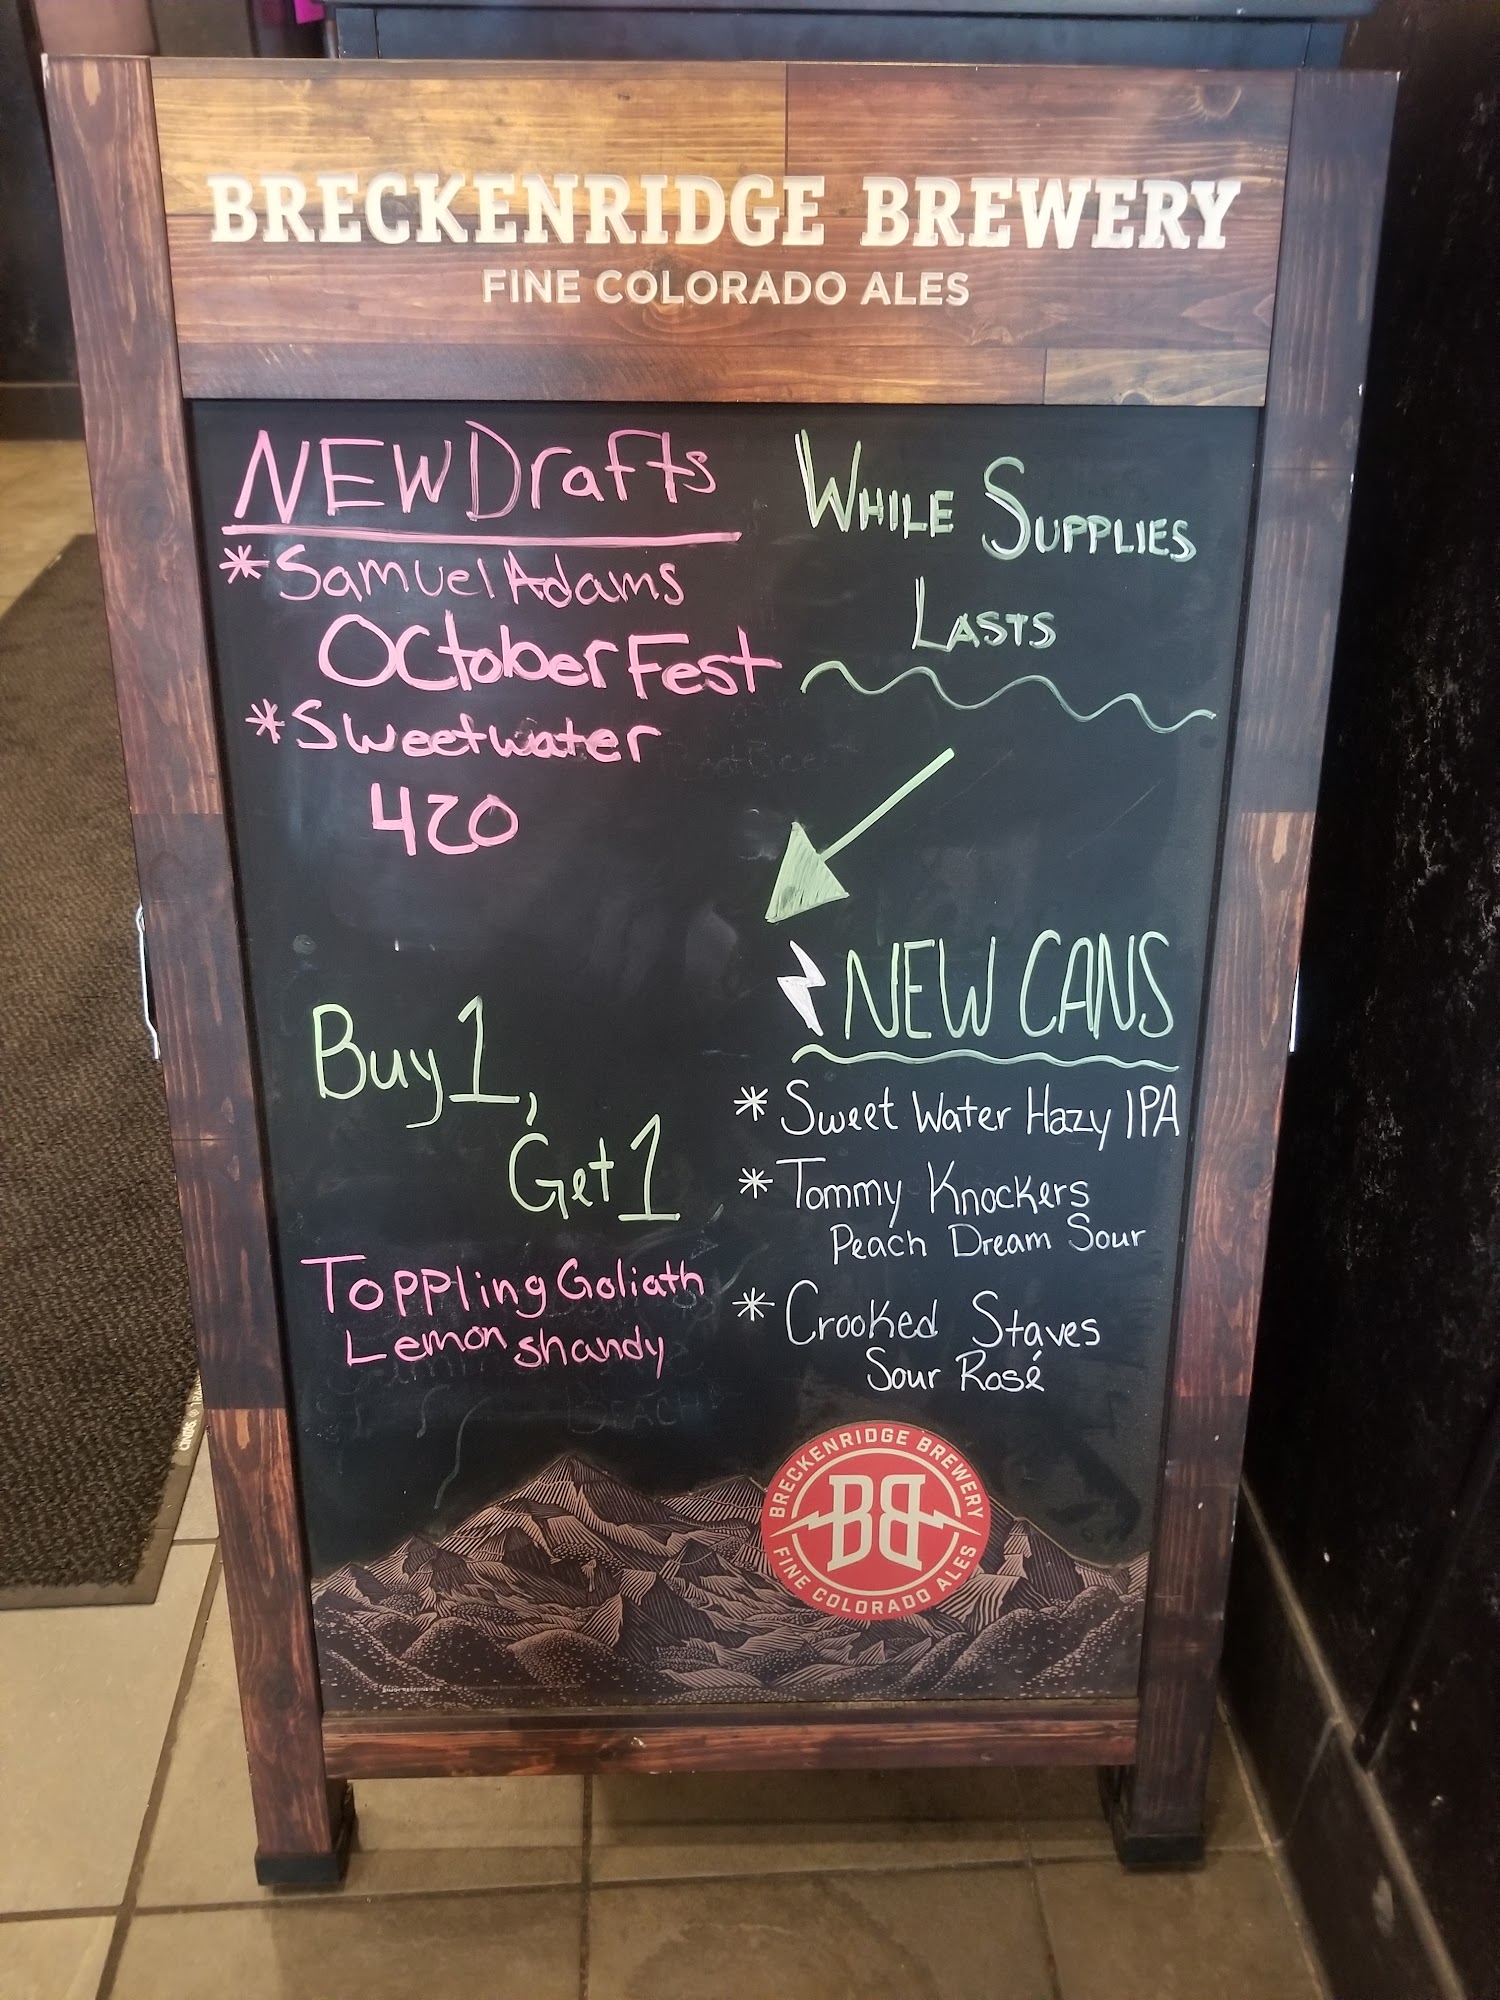 BRECKENRIDGE BREWERY
FINE COLORADO ALES
NEW Drafts
* Samuel Adams
OctoberFest
* Sweetwater
420
WHILE SUPPLIES
LASTS
Buy 1,
Get 1
Toppling Goliath
Lemon shandy
NEW CANS
* Sweet Water Hazy IPA
* Tommy Knockers
Peach Dream Sour
* Crooked Staves
Sour Rosé
BRECKENRIDGE BREWERY
BB
FINE COLORADO ALES
CINTAS